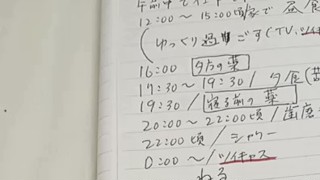 12:00〜15:00頃家で 昼食
(ゆっくり過ごす(TV、ツイ
16:00 夕方の薬
17:30〜19:30/夕食(
19:30/寝る前の薬
20:00〜22:00頃/歯磨
22:00頃/シャワー
0:00〜/ツイキャス
ねる